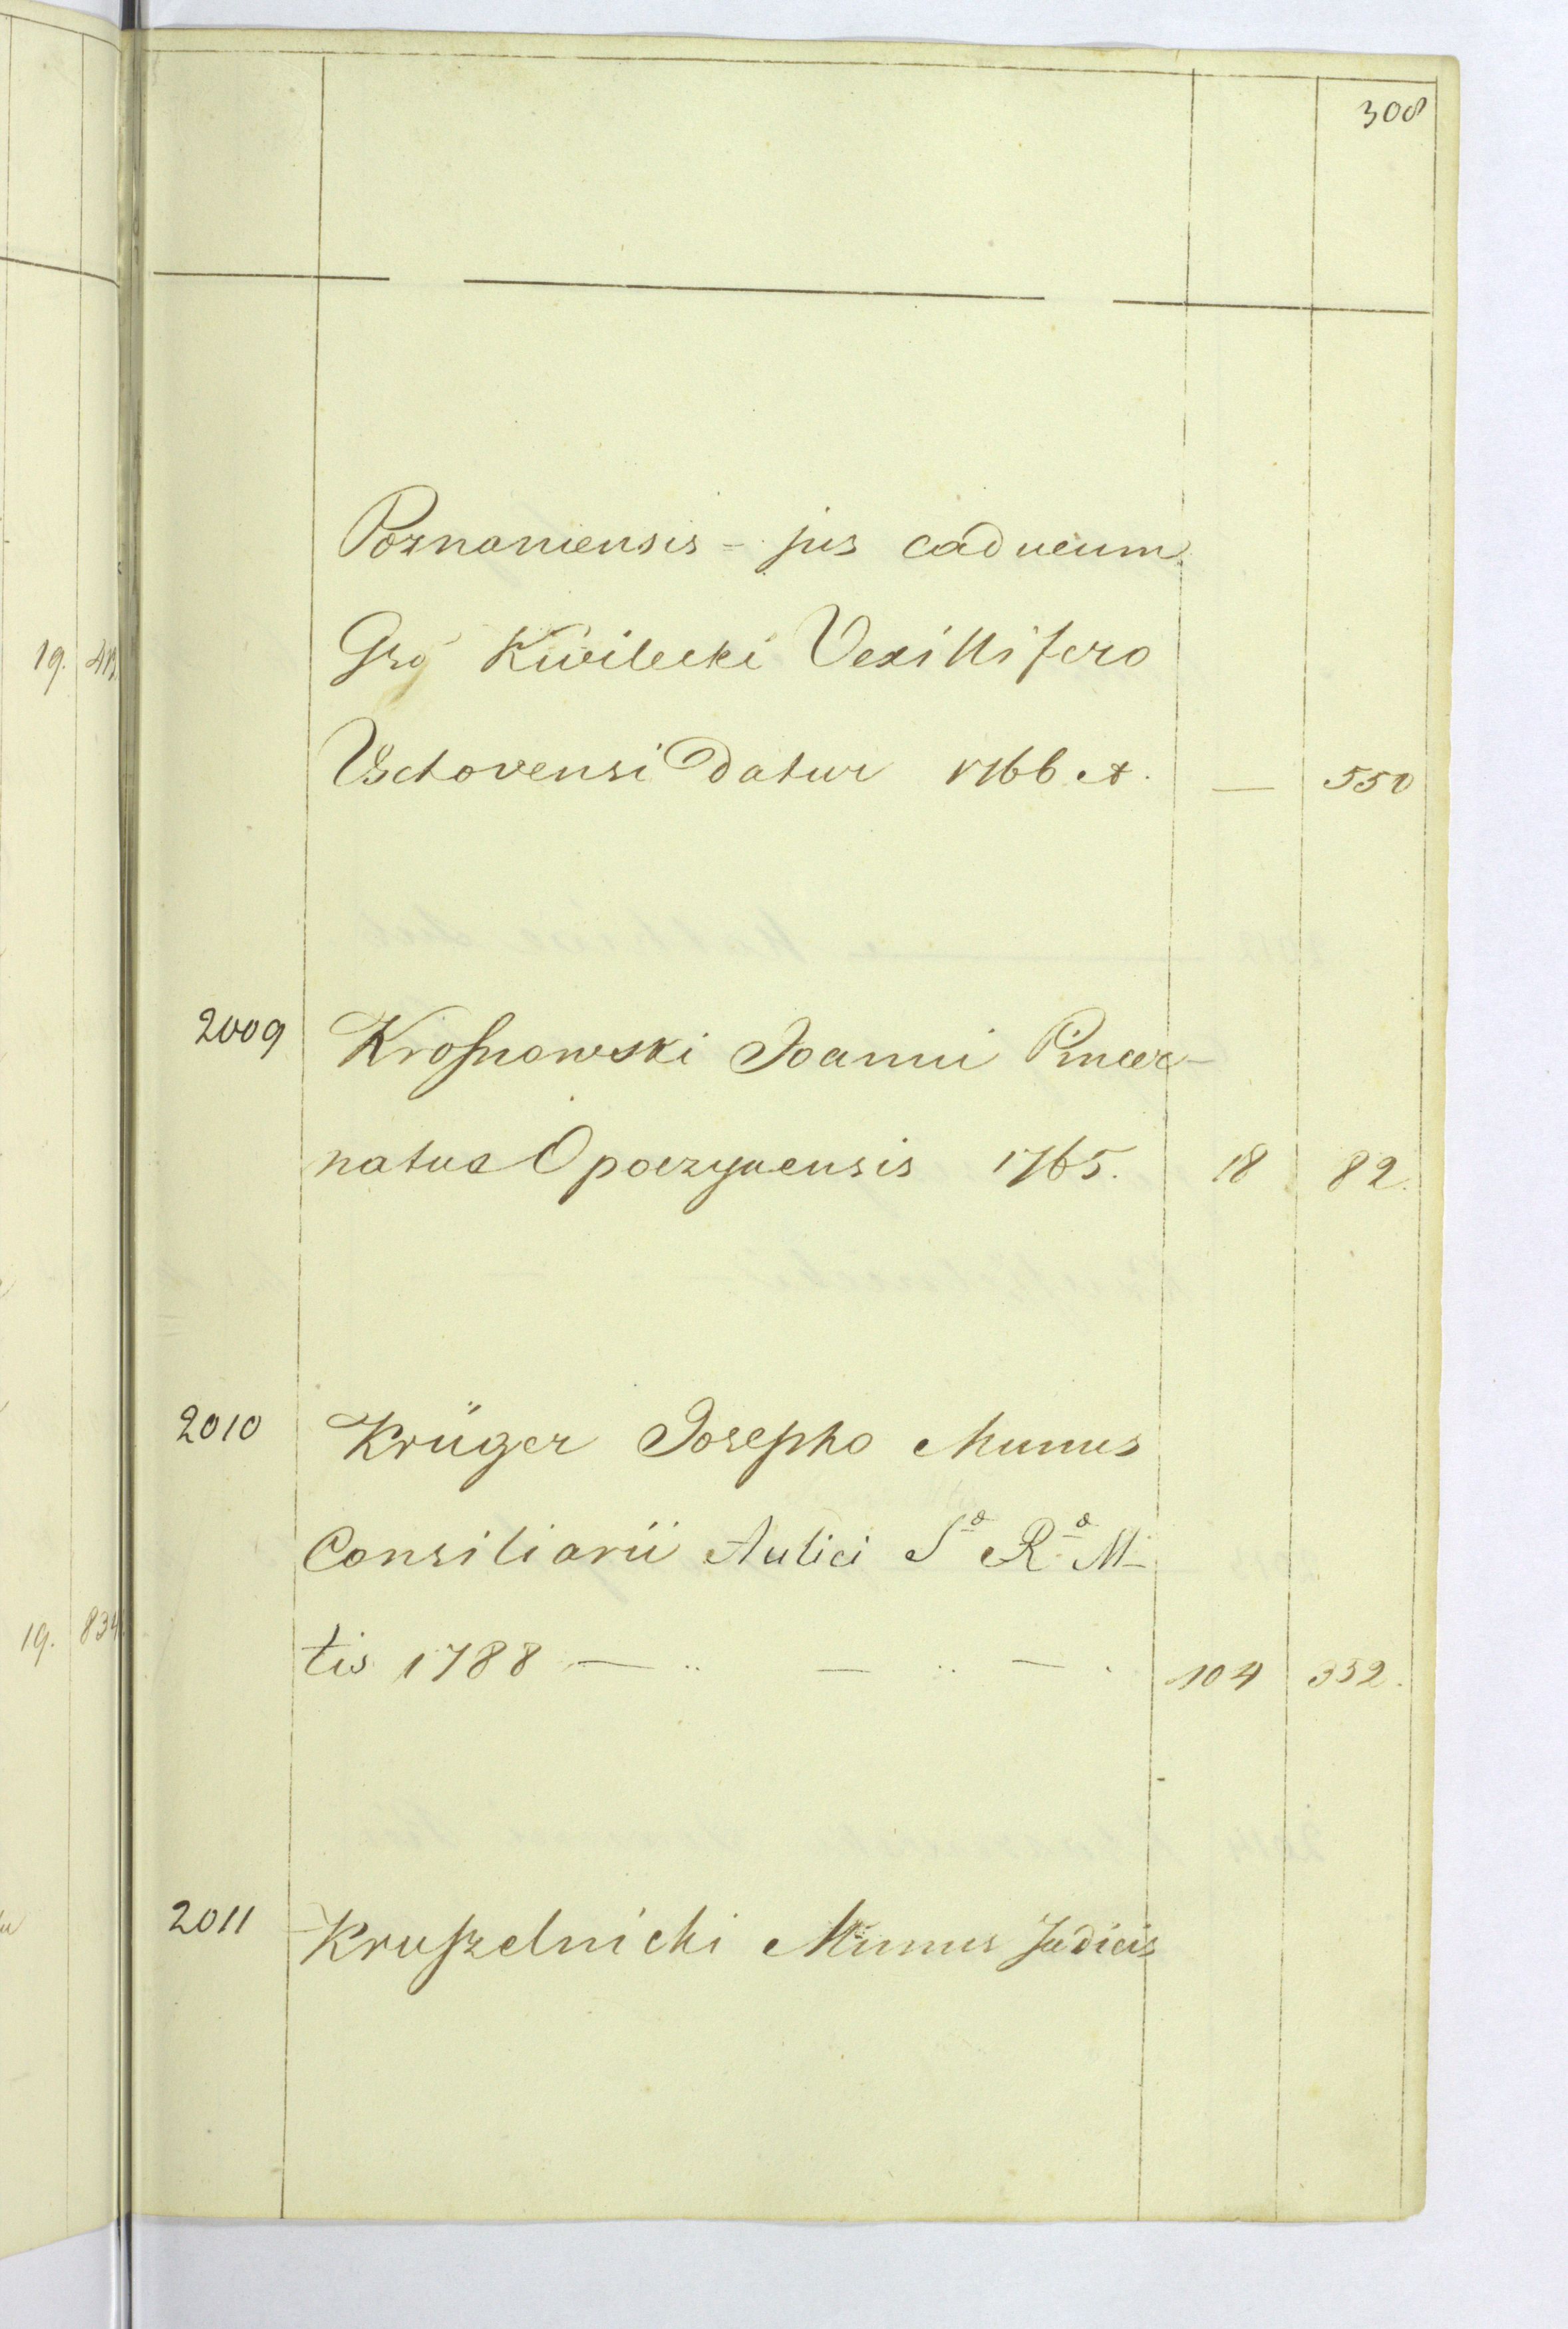 308
Poznaniensis - jus caducum
Gsg Kwilecki Vexillifero
Vschovensi datur 1766 A. — 550
2009 Kroſnowski Joanni Pincer-
natus Opoczynensis 1765. 18 82.
2010 Krüger Josepho Munus
Consiliarii Aulici Sª Rª M-
tis 1788 — .. — .. — . 104 352.
2011 Kruſzelnicki Munus Judicis
19.
19. 834